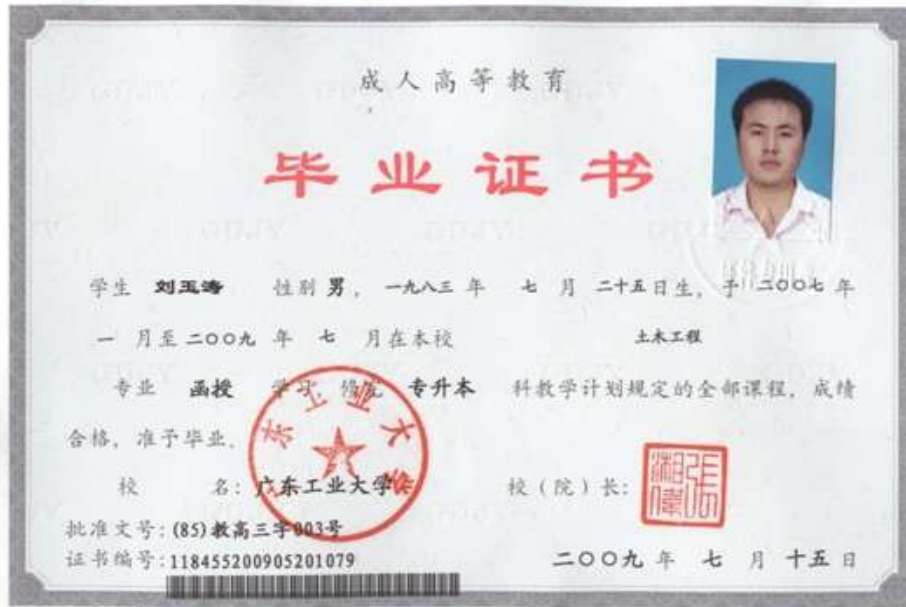 成人高等教育
毕业证书
学生 刘玉海 性别 男, 一九八三 年 七 月 二十五 日生, 于 二〇〇七 年
一 月至 二〇〇九 年 七 月在本校 土木工程
专业 函授 学习, 修完 专升本 科教学计划规定的全部课程, 成绩
合格, 准予毕业。
广东工业大学
校 名: 广东工业大学 校(院)长: 张湘伟
批准文号: (85)教高三字003号
证书编号: 118455200905201079
二〇〇九 年 七 月 十五 日